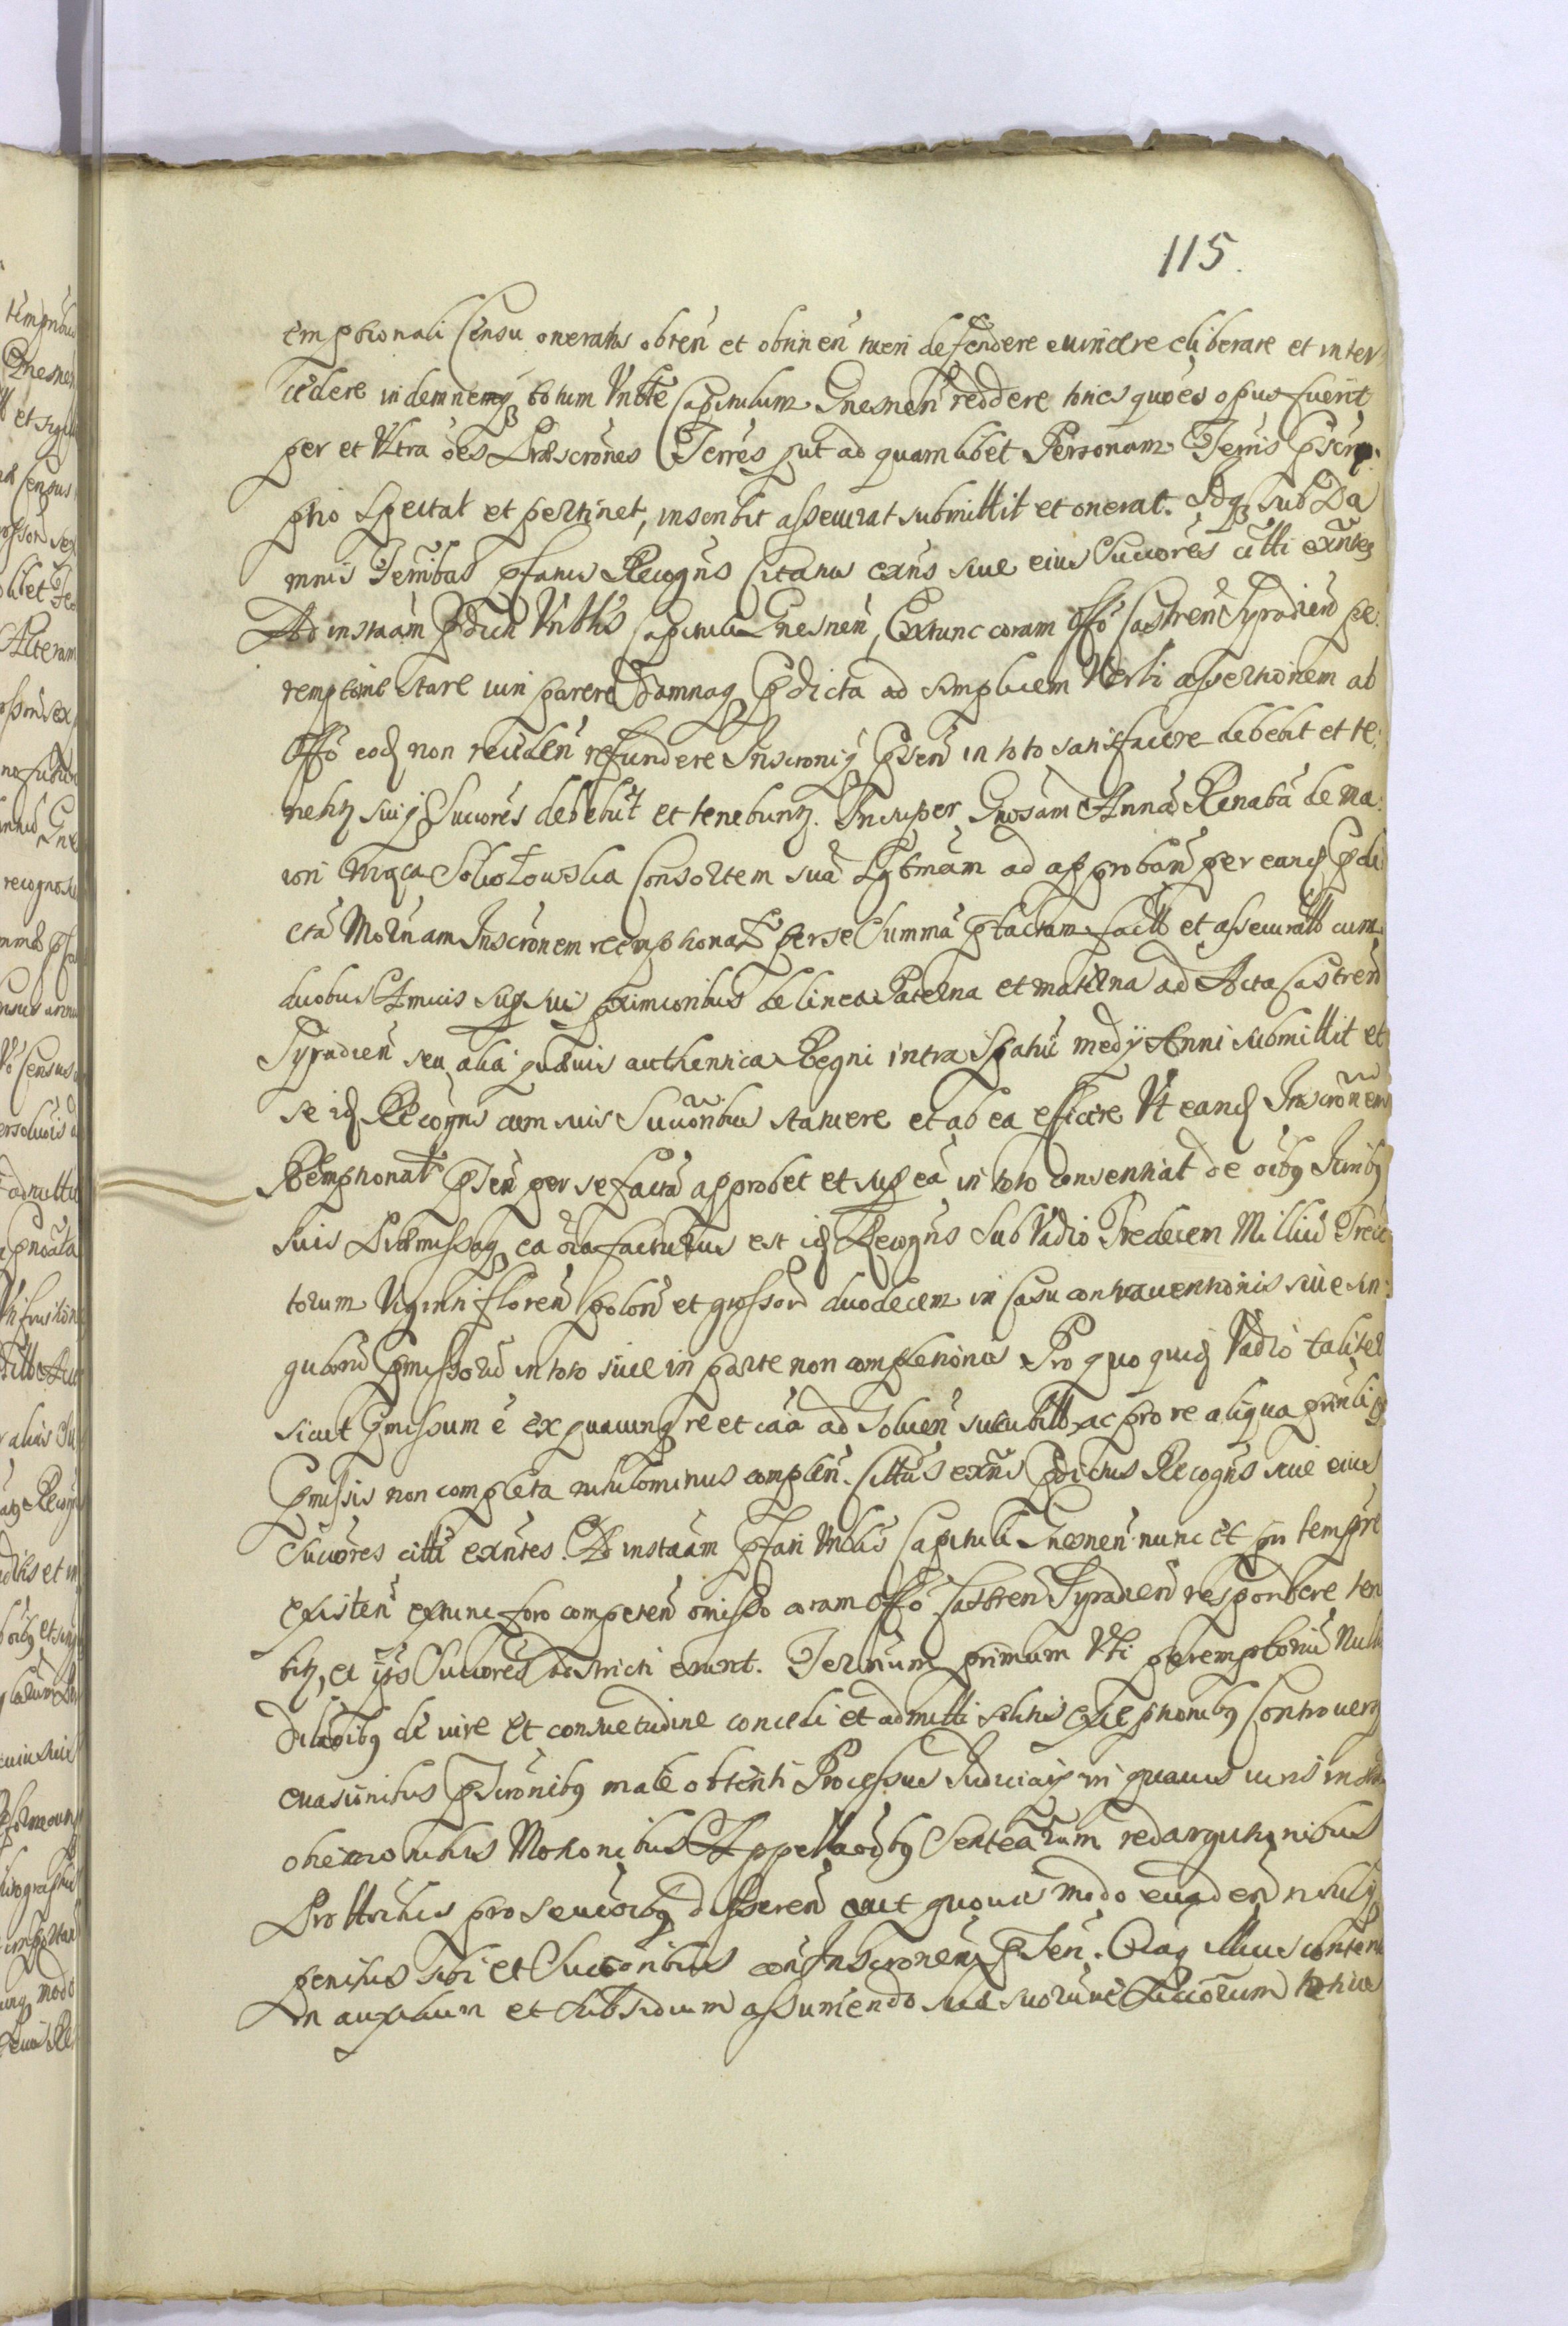 115.
emptionali Censu oneratis obten̄ et obtinen̄ tueri defendere evincere eliberare et inter
cedere indemnemq₃ totum Vnble Capitulum Gnesnen̄ reddere toties quoēs opus fuerit
per et Vltra oēs Præscrōnes Terrēs put ad quamlibet Personam Terris Pscrip:
ptio spectat et pertinet, inscribit assecurat submittit et onerat. Idq₃ sub Da
mnis Terribus pfatus Recogn̄s Citatus exn̄s siue eius Succōres citti exn̄tes
Ad instaām Pdicti Vnblis Capituli Gnesnen̄, Extunc coram Offō Castren̄ Syradien̄ pe:
remptorie stare iuri parere Damnaq₃ Pdicta ad simplicem Verbi assertionem ab
Offō eod̄ non recēden̄ refundere Inscroniq₃ Psen̄ in toto satisfacere debebit et te:
nebit̄ suiq₃ Succōres debebūt et tenebunt̄. Insuper Gnosam Annā Renatā de Ma:
Sokołowska Consortem suā Lgtmam ad approban̄ per eand̄ Pdi
ctā Inscrōnem reemptionalē per se Summā Ptactam factā et assecuratā cum
duobus Amicis suis propinquioribus de linea Paterna et materna ad Acta Castren̄
Syradien̄ seu alia quævis authentica Regni intra Spatiū medij Anni submittit et
se id̄ Recogn̄s cum suis Succōribus statuere et ab ea efficere Vt eand̄ Inscrōnem
Reemptionalē Psen̄ per se factā approbet et sup eā in toto consentiat de oībq₃ Juribq₃
suis Præmissaq₃ ea oīa facturus est id̄ Recogn̄s Sub Vadio Tredecem Milliū Trecē
torum Viginti floren̄ polon̄ et grossorū duodecem in Casu contrauentionis siue sin:
gulorū Pmissorū in toto siue in parte non completionis Pro quo quid̄ Vadio taliter
sicut Pmissum ē ex quacunq₃ re et caā ad Soluen̄ ac pro re aliqua
Pmissis non completa nihilominus complen̄. Cittus exn̄s Pdictus Recogn̄s siue eius
Succōres citti exn̄tes. Ad instaām Pfati Vnblis Capituli Gnesnen̄ nunc et pro tempre
existen̄ extunc foro competen̄ omisso coram Offō Castren̄ Syradien̄ respondere ten
bit̄, et ijs Succōres astricti erunt. Terminum primum Vti peremptoriū Nullis
dilaōibq₃ de iure et consuetudine concedi et admitti solitis exceptionibq₃ Controuers̄
euasionibus Pscrōnibq₃ male obtenti Processus Judiciarij in quauis iuris
Motionibus Appellaōibq₃ Sentēarum redargutionibus
prosecuōibq₃ differen̄ aut quouis modo euaden̄
penitus sibi et Succōribus con̄ Inscrōnem Psen̄. Oīaq₃ illius conten
In auxilium et Subsidium assumendo siue suorum Succōrum